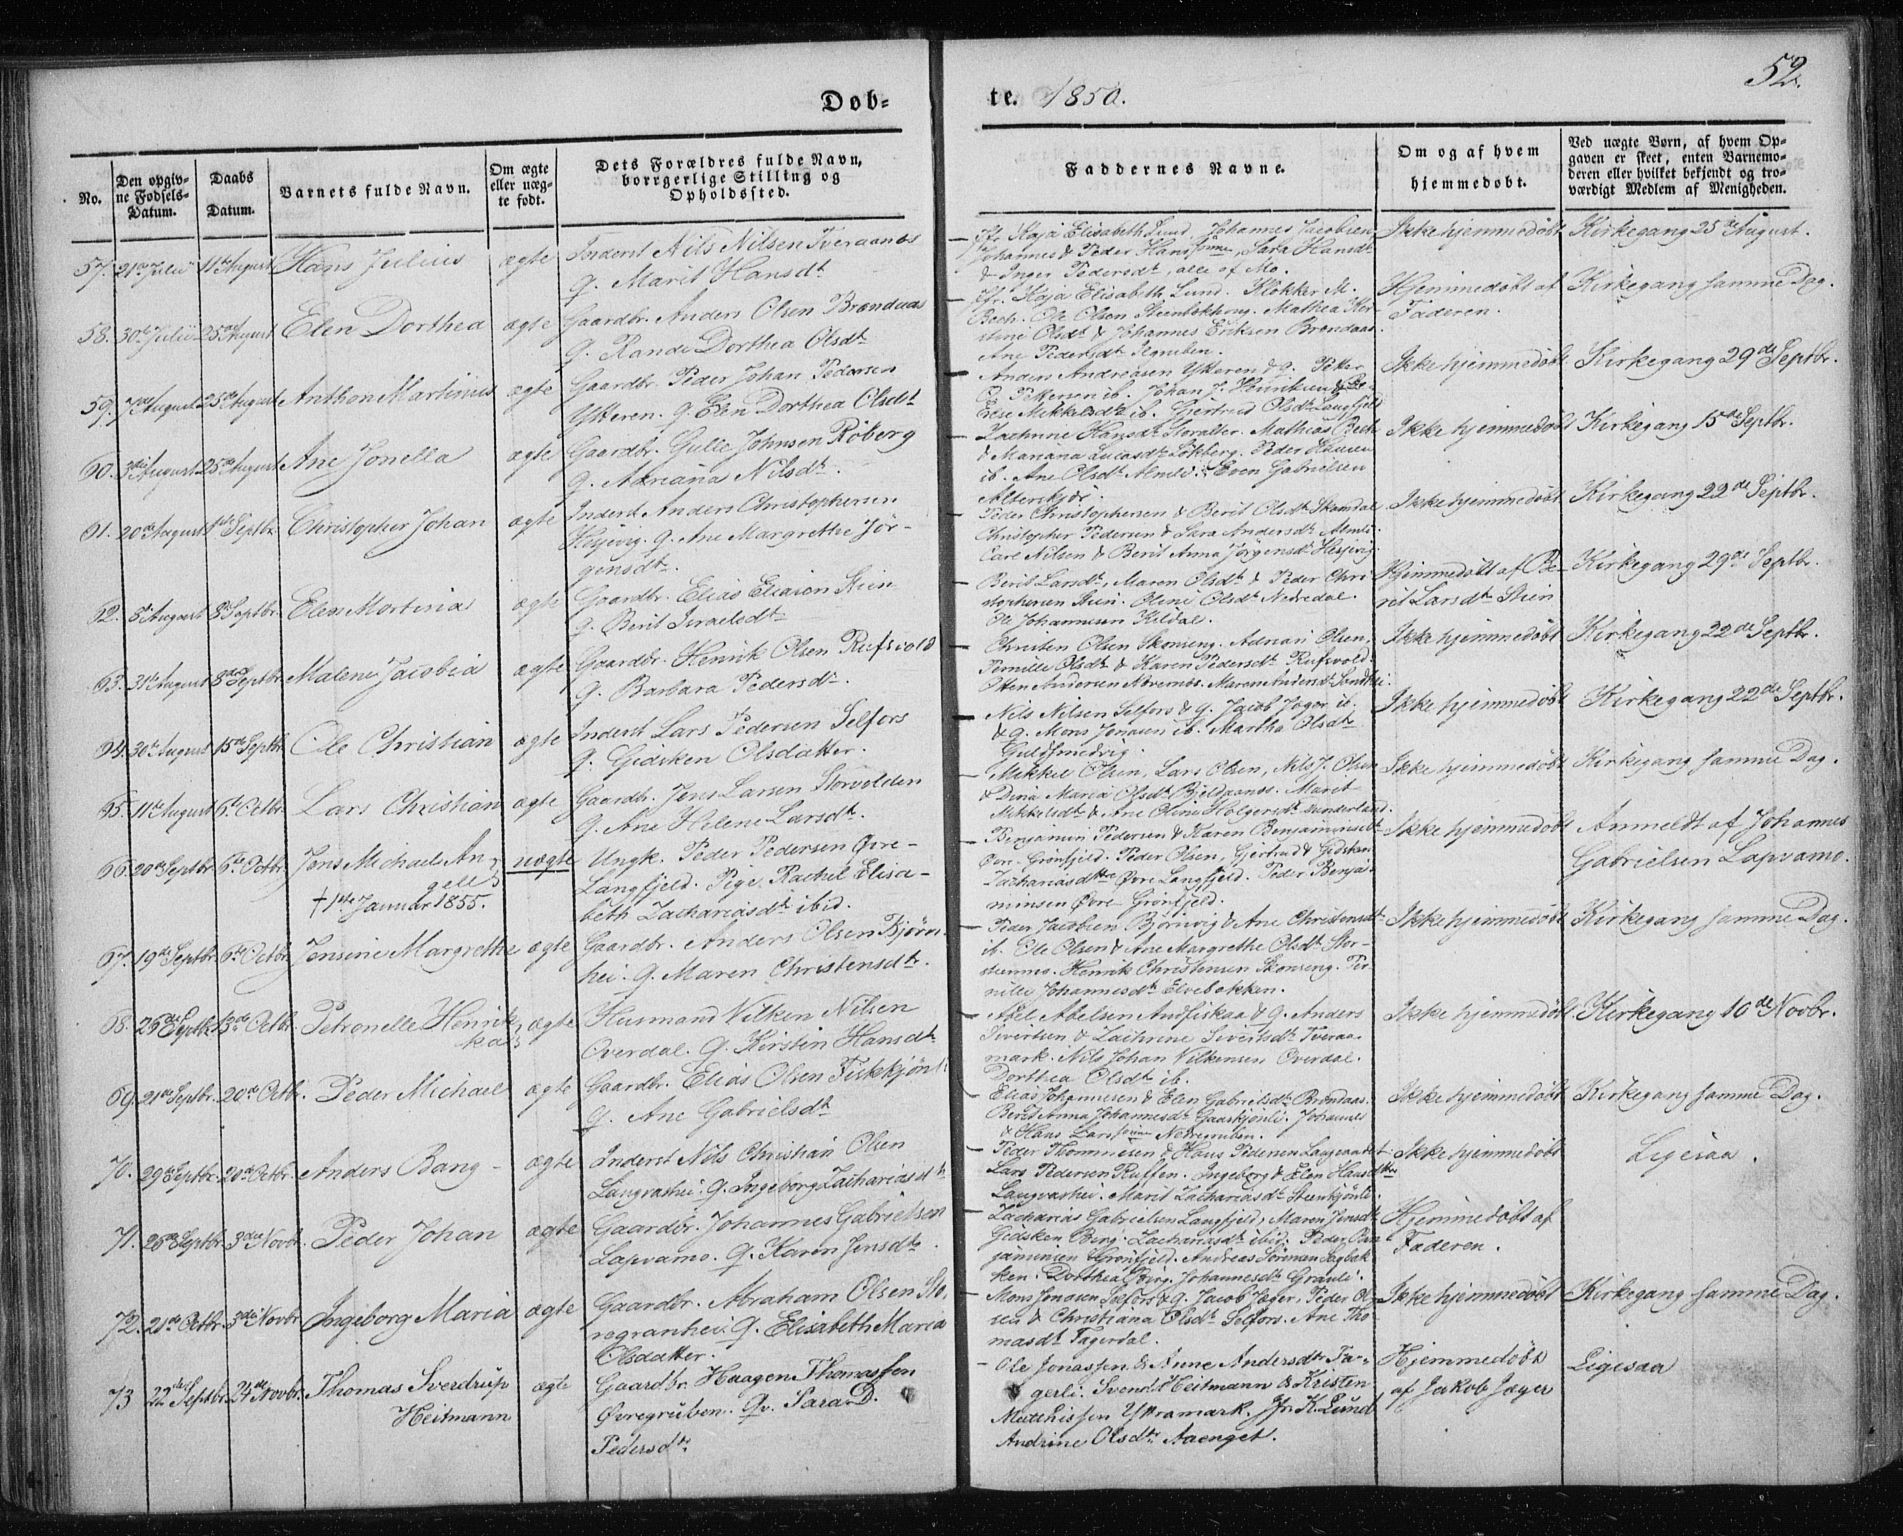 52.
Døb-
te. 1850.
No.
Den opgiv-
ne Fødsels-
Datum.
Daabs
Datum.
Barnets fulde Navn.
Om ægte
eller uæg-
te født.
Dets Forældres fulde Navn,
borrgerlige Stilling og
Opholdssted.
Faddernes Navne.
Om og af hvem
hjemmedøbt.
Ved uægte Børn, af hvem Op-
gaven er skeet, enten Barnemo-
deren eller hvilket bekjendt og tro-
værdigt Medlem af Menigheden.
57. 21de Julii 11te August Hans Julius ægte Inderst Nils Nilsen Tveraanæs
g. Marit Hansdt
Jfr. Kaja Elisabeth Lund, Johannes Jacobsen
Johannes & Peder Hans sønner, Sara Hansdt
& Inger Pedersdt, alle af Mo.
Ikke hjemmedøbt Kirkegang 25de August.
58. 30te Julii 25de August Elen Dorthea ægte Gaardbr. Anders Olsen Brendaas
g. Rande Dorthea Olsdt
Jfr. Kaja Elisabeth Lund. Klokker M.
Bech. Ole Olsen Steinbekhaug. Mathea Kir-
stine Olsdt & Johannes Eriksen Brendaas.
Ane Pedersdt
Hjemmedøbt af
Faderen.
Kirkegang samme Dag.
59. 7de August 25de August Anthon Martinus ægte Gaardbr. Peder Johan Pedersen
Ytteren. g. Elen Dorthea Olsdt
Anders Andreasen Ytteren & g. Petter
O. Pettersen ib. Johan J. Henriksen &
Else Mikkelsdt ib. Gjertrud Olsdt Langfjeld
Ikke hjemmedøbt Kirkegang 29de Septbr.
60. 3die August 25de August Ane Jonella ægte Gaardbr. Gulle Johnsen Røberg
g. Adriana Nilsdt.
Zachrine Hansdt Storalter. Mathias Bech
& Mariana Lucasdt Løkberg. Peder Hansen
ib. Ane Olsdt Almlie. Even Gabrielsen
Alterskjær.
Ikke hjemmedøbt Kirkegang 15de Septbr.
61. 20de August 1ste Septbr. Christopher Johan ægte Inderst Anders Christophersen
Hesjevig. g. Ane Margrethe Jør-
gensdt.
Peder Christophersen & Berit Olsdt Skandal
Christopher Pedersen & Sara Andersdt Almli.
Carl Nilsen & Berit Anna Jørgensdt Hesjevig.
Ikke hjemmedøbt Kirkegang 22de Septbr.
62. 8de August 8de Septbr. Elen Martina ægte Gaardbr. Elias Eliasen Steen
g. Berit Israelsdt
Berit Larsdt, Maren Olsdt & Peder Chri-
stophersen Steen. Oline Olsdt Nedredal.
Ole Johannesen Kildal.
Hjemmedøbt af Be-
rit Larsdt Steen
Kirkegang 29de Septbr.
63. 31te August 8de Septbr. Malene Jacobia ægte Gaardbr. Henrik Olsen Rufsvold
g. Barbara Pedersdt.
Christen Olsen Skonseng. Adrian Olsen,
Pernille Olsdt & Karen Pedersdt Rufsvold.
Otten Andersen Maren Andersdt
Ikke hjemmedøbt Kirkegang 22de Septbr.
64. 30te August 15de Septbr. Ole Christian ægte Inderst Lars Pedersen Selfors
g. Gidsken Olsdatter.
Nils Nilsen Selfors & g. Jacob Jæger ib.
& g. Mons Jonasen ib. Martha Olsdt
Guldsmedvig.
Ikke hjemmedøbt Kirkegang 22de Septbr.
65. 11te August 6te Octbr. Lars Christian ægte Gaardb. Jens Larsen Storvolden
g. Ane Helene Larsdt.
Mikkel Olsen, Lars Olsen, Nils J. Olsen
& Dina Maria Olsdt Bjeldaanæs. Marit
Mikkelsdt & Ane Oline Holgersdt Dunderland.
Ikke hjemmedøbt Kirkegang samme Dag.
66. 20de Septbr. 6te Octbr. Jens Michael An-
gell
† 1ste Januar 1855.
uægte Ungk. Peder Pedersen Øvre-
Langfjeld. Pige. Rachel Elisa-
beth Zachariasdt ibid.
Benjamin Pedersen & Karen Benjaminsdt
Øvre-Grønfjeld. Peder Olsen, Gjertrud & Gidsken
Zachariasdttr Øvre Langfjeld. Peder Benja-
minsen Øvre Grønfjeld.
Ikke hjemmedøbt Anmeldt af Johannes
Gabrielsen Lapvamo.
67. 19de Septbr. 6te Octbr. Jensine Margrethe ægte Gaardbr. Anders Olsen Bjørn-
hei. g. Maren Christensdt.
Peder Jacobsen Bjørnvig & Ane Christensdt
ib. Ole Olsen & Ane Margrethe Olsdt Stor-
stennes. Henrik Christensen Skonseng. Per-
nille Johannesdt Elvebakken.
Ikke hjemmedøbt Kirkegang samme Dag.
68. 26de Septbr. 13de Octbr. Petronelle Henrik-
ka ægte Husmand Vilken Nilsen
Overdal. g. Kirstin Hansdt
Abel Abelsen Andfiskaa & g. Anders
Sivertsen & Zachrine Sivertsdt Tveraa-
mark. Nils Johan Vilkensen Overdal.
Dorthea Olsdt ib.
Ikke hjemmedøbt Kirkegang 10de Novbr.
69. 21de Septbr. 20de Octbr. Peder Michael ægte Gaardbr. Elias Olsen Fiskkjønli
g. Ane Gabrielsdt
Elias Johannesen & Elen Gabrielsdt Brendaas.
Berit Anna Johannesdt Gaaskjønli. Johannes
& Hans Lars sønner Nedregruben.
Ikke hjemmedøbt Kirkegang samme Dag.
70. 29de Septbr. 20de Octbr. Anders Bang - ægte Inderst Nils Christian Olsen
Langvashei. g. Ingeborg Zachariasdt
Peder Thommesen & Hans Pedersen Langvandet
Lars Pedersen Ruffen. Ingeborg & Elen Hansdttr
Langvashei. Marit Zachariasdt Steenkjønli.
Ikke hjemmedøbt Ligesaa.
71. 26de Septbr. 3die Novbr. Peder Johan ægte Gaardbr. Johannes Gabrielsen
Lapvamo. g. Karen Jensdt
Zacharias Gabrielsen Langfjeld, Maren Jensdt
Gidsken Berg. Zachariasdt ibid. Peder Ben-
jaminsen Grønfjeld. Andreas Sørensen Bagbak-
ken. Dorthea Berg. Johannesdt Grønli.
Hjemmedøbt af
Faderen.
72. 21de Octbr. 3die Novbr. Ingeborg Maria ægte Gaardbr. Abraham Olsen Sto-
regranhei. g. Elisabeth Maria
Olsdatter.
Mons Jonasen Selfors & g. Jacob Jæger, Peder Ol-
sen & Christiana Olsdt Selfors. Ane Tho-
masdt Fagerdal.
Ikke hjemmedøbt Kirkegang samme Dag.
73 22de Septbr. 24de Novbr. Thomas Sverdrup
Heitmann
ægte Gaardbr. Haagen Thomassen
Øvregruben. Qv. Sara D.
Pedersdtr
Ole Jonassen & Anne Andersdtr Fa-
gerli. Svend Heitmann & Kristen
Matthissen Yttramark. Jfr. K. Lund
Andrine Olsdtr Aaenget.
Hjemmedøbt
af Jakob Jæger
Ligesaa